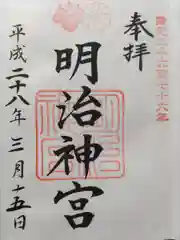 奉拝
明治神宮
平成二十八年三月十五日